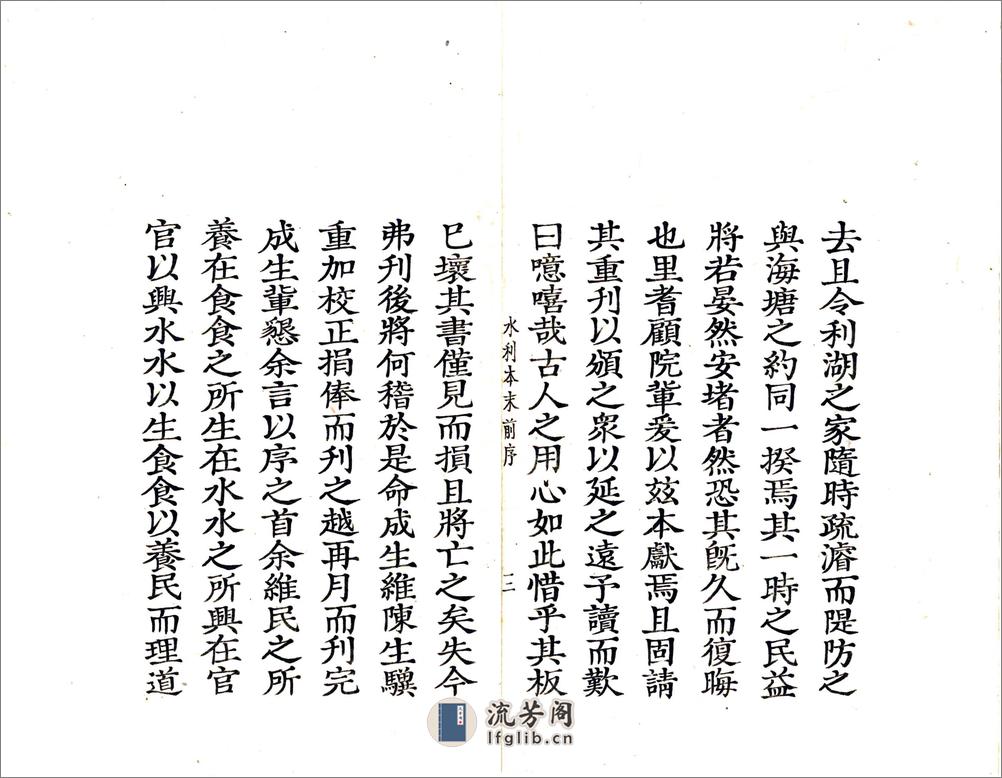 去且令利湖之家隨時疏濬而隄防之
與海塘之約同一揆焉其一時之民益
將若晏然安堵者然恐其旣久而復晦
也里耆顧院軰爰以玆本獻焉且固請
其重刊以頒之衆以延之遠予讀而歎
曰噫嘻哉古人之用心如此惜乎其板
水利本末前序 三
巳壞其書僅見而損且將亡之矣失今
弗刊後將何稽於是命成生維陳生驥
重加校正捐俸而刊之越再月而刊完
成生軰懇余言以序之首余維民之所
養在食食之所生在水水之所興在官
官以興水水以生食食以養民而理道
流芳阁
lfglib.cn